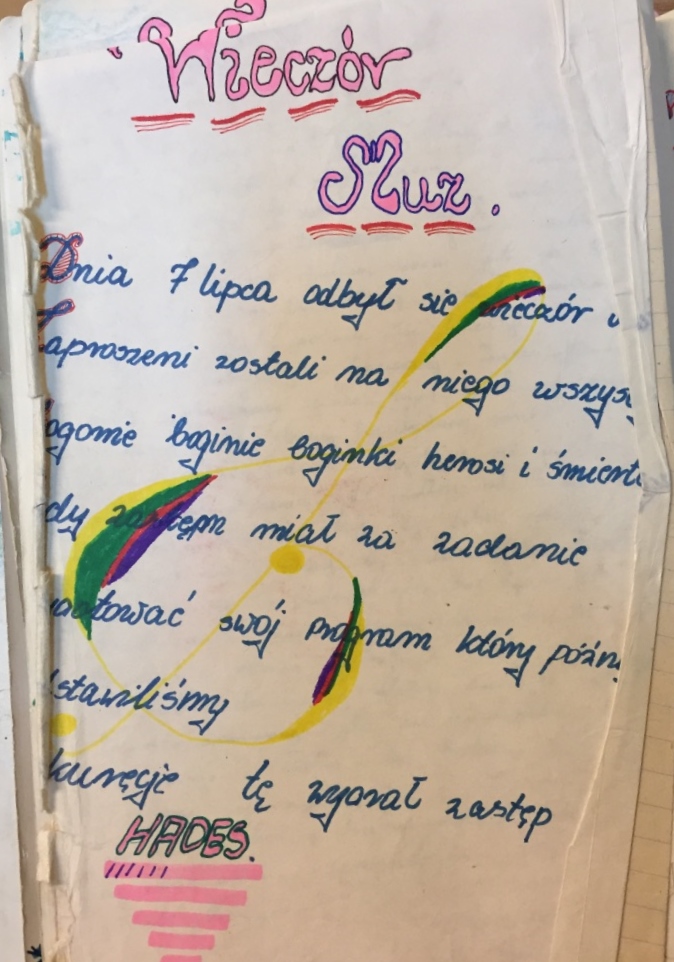 Wieczór
Muz.
Dnia 7 lipca odbył się wieczór
Zaproszeni zostali na niego wszys
ogowie boginie boginki herosi i śmiert
dy zastęp miał za zadanie
swój program który późn
stawiliśmy
kuręcje tę wygrał zastęp
HADES.